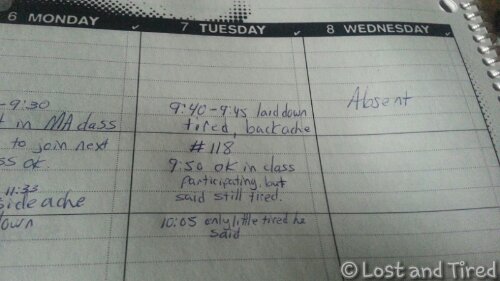 6 MONDAY
-9:30
in MA class
to join next
ss ok.
11:33
side ache
down
7 TUESDAY
9:40-9:45 laid down
tired, backache
#118
9:50 ok in class
participating, but
said still tired.
10:05 only little tired he
said
8 WEDNESDAY
Absent
© Lost and Tired